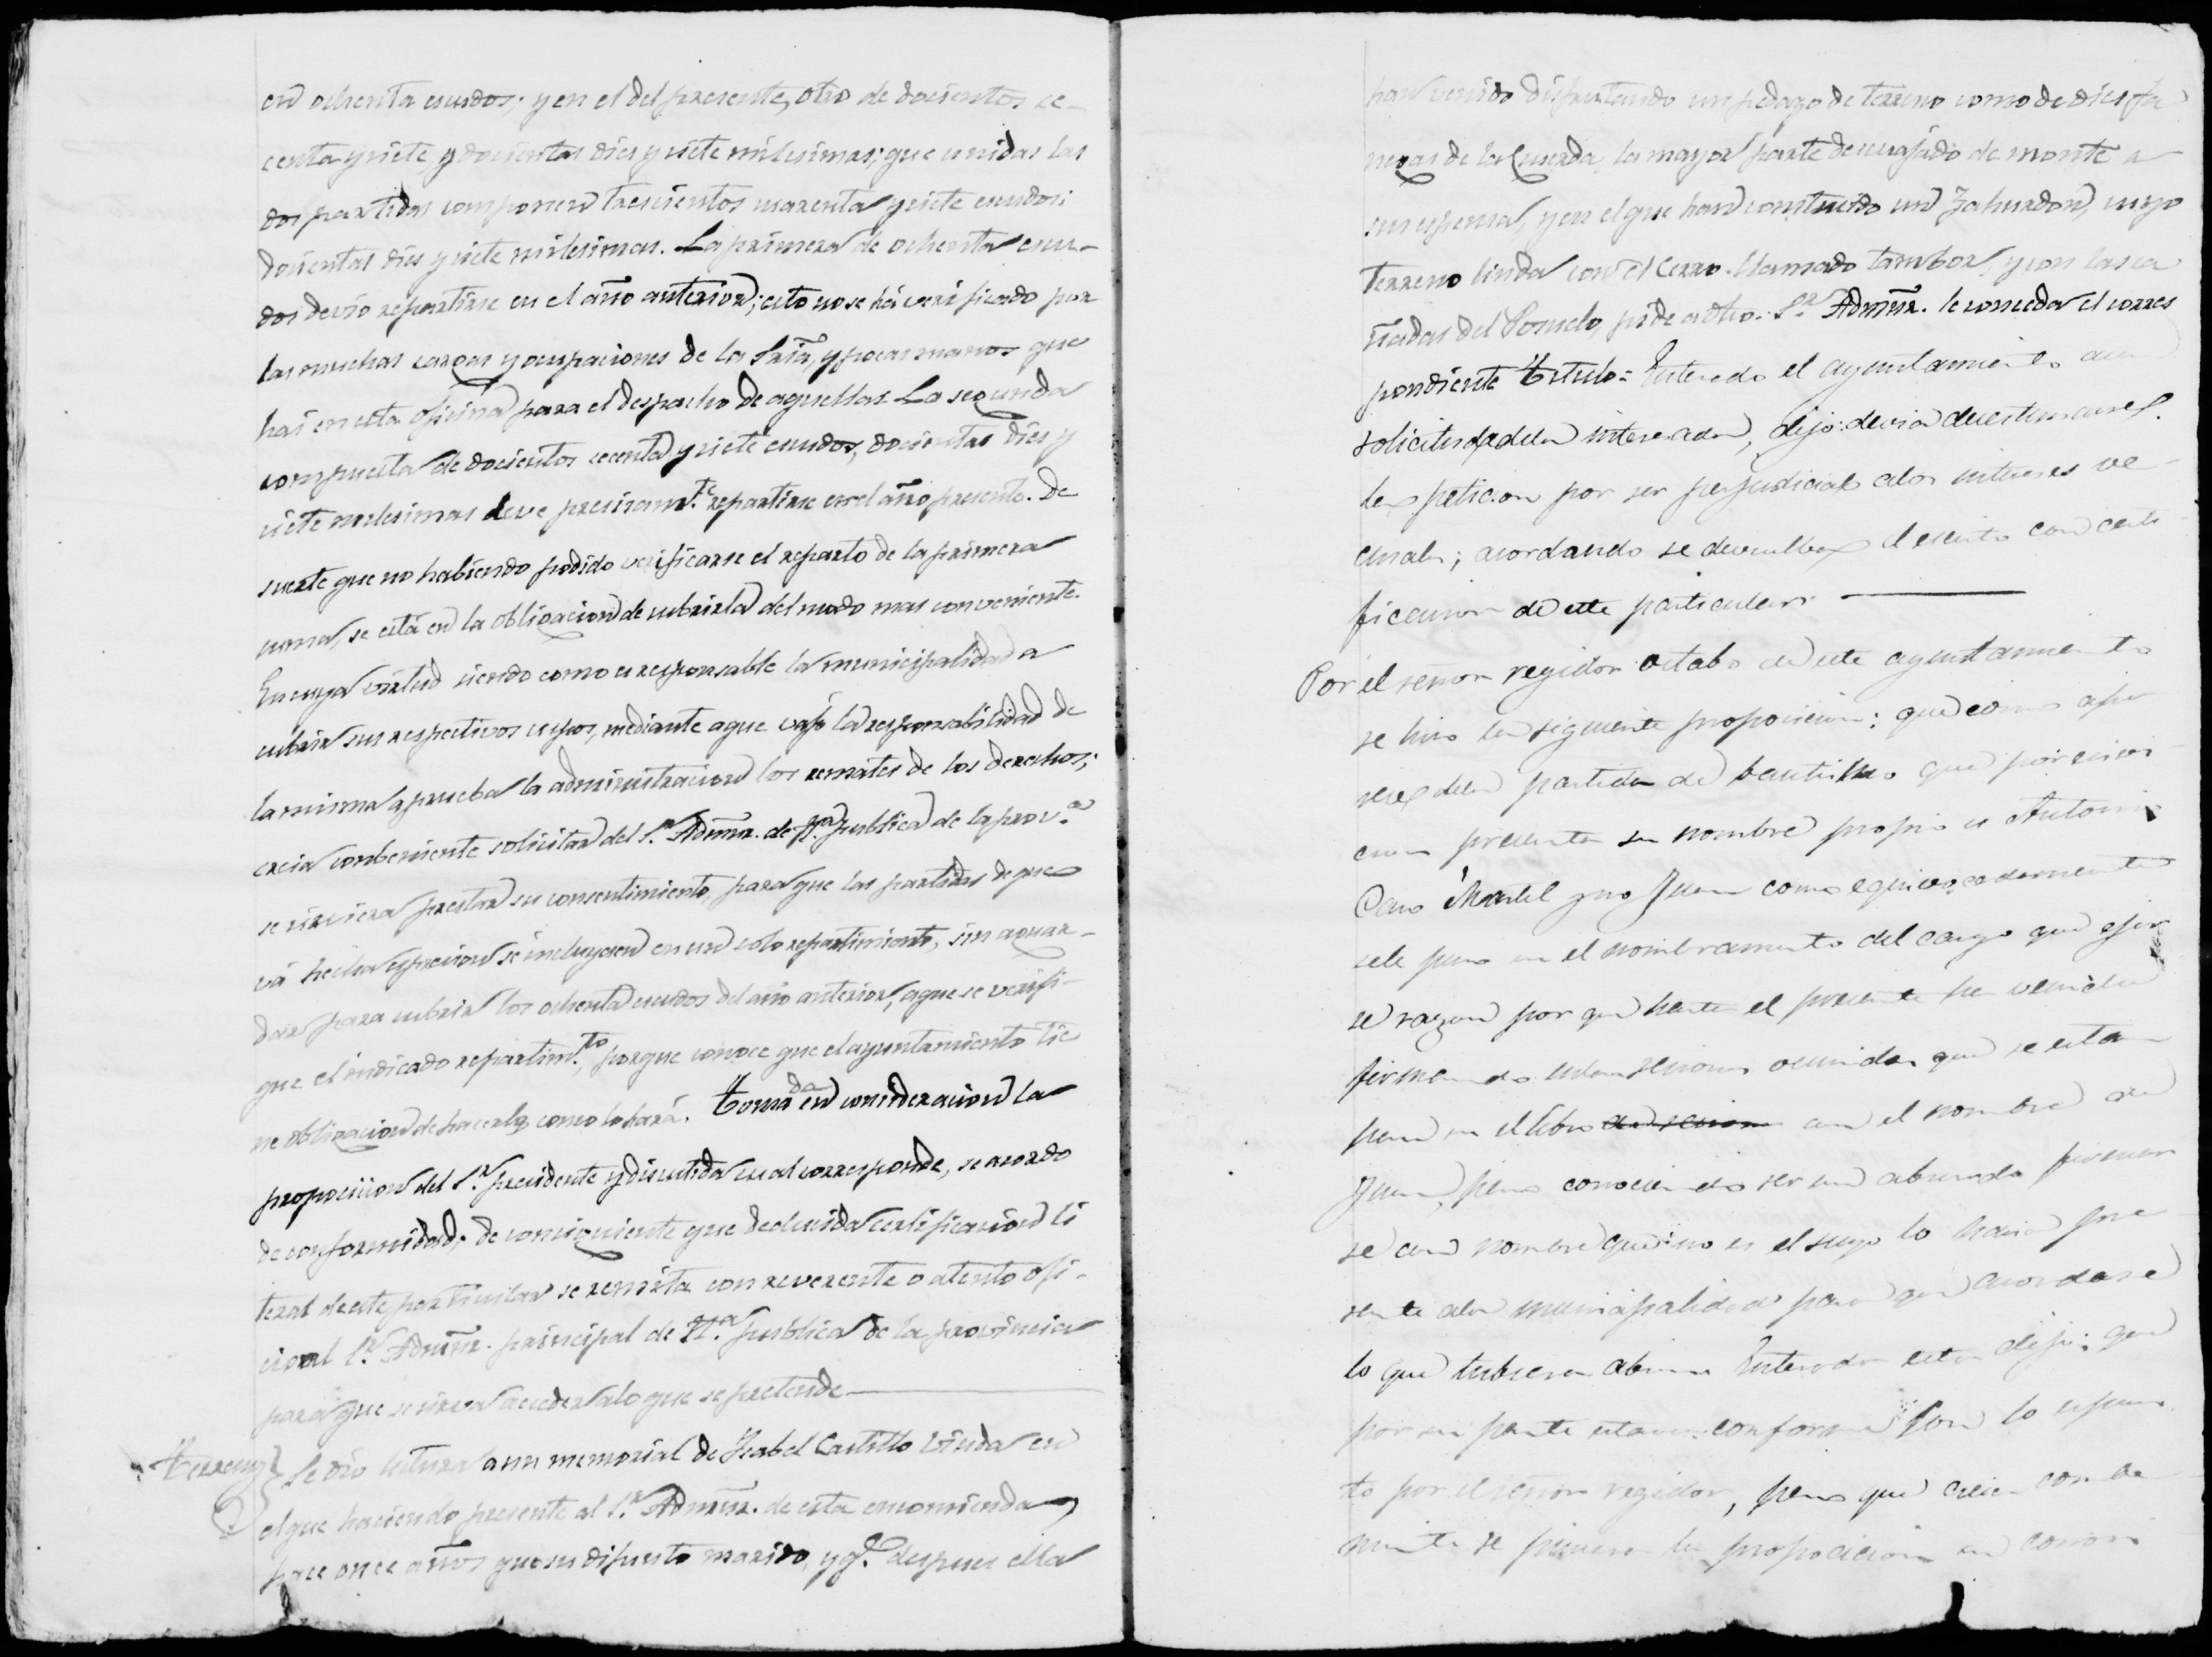 en ochenta escudos; y en el del presente, otro de docientos se-
centa y siete, y docientas dies y siete milesimas; que unidas las
dos partidas componen trescientos cuarenta y siete escudos;
docientas dies y siete milesimas. La primera de ochenta escu-
dos devió repartirse en el año anterior; esto no se há verificado por
las muchas cargas y ocupaciones de la Sria, y pocas manos que
hai en esta oficina para el despacho de aquellas. La segunda
compuesta de docientos secenta y siete escudos, docientas dies y
siete milesimas deve presisamte. repartirse en el año presente. De
suerte que no habiendo podido verificarse el reparto de la primera
suma, se está en la obligacion de cubrirla del modo mas conveniente.
En cuya virtud siendo como es responsable la municipalidad a
cubrir sus respectivos cupos, mediante a que vajo la responsabilidad de
la misma aprueba la administracion los remates de los derechos;
creia conbeniente solicitar del Sr. Admor. de Ha. publica de la prova.
se sirviera prestar su consentimiento, para que las partidas de que
vá hecha espresion se incluyesen en un solo repartimiento, sin aguar-
dar para cubrir los ochenta escudos del año anterior, a que se verifi-
que el indicado repartimto., porque conoce que el ayuntamiento tie
ne obligacion de hacerlo, como lo hará. Tomada en consideracion la
proposicion del Sr. precidente y discutida cual corresponde, se acordo
de conformidad; de consiguiente que deducida certificacion li
teral de este particular se remita con reverente o atento ofi-
cio al Sr. Admor. principal de Ha. publica de la provincia
para que se sirva acceder a lo que se pretende
Terreno Se dió lectura a un memorial de Isabel Castillo Viuda en
el que haciendo presente al Sr. Admor. de esta encomienda
hace once años que su difunto marido, y ge. despues ella
han venido disfrutando un pedazo de terreno como de dies fa
negas de la Cuerda, la mayor parte descuajado de monte a
sus espensas, y en el que han construido un Zahurdon, cuyo
terreno linda con el Cerro llamado tambor, y con las ca
ñadas del Posuelo, pide a dho. Sr. Admor. le conceda el corres
pondiente titulo= Enterado el ayuntamiento de la
solicitud de la interesada, dijo: devia desestimarse
la peticion por ser perjudicial a los intereses ve-
cinales; acordando se devuelba el escrito con certi
ficacion de este particular
Por el señor regidor octabo de este ayuntamiento
se hiso la siguiente proposicion: que como apa
rese de la partida de bautismo que
presenta su nombre propio es Antonio
Caro Martel y no Juan como equivocadamente
se le puso en el nombramiento del cargo que ejer
se razon por que hasta el presente ha venido
firmando en las sesiones ocurridas que se estam
pan en el libro con el nombre de
Juan, pero conociendo ser un absurdo firmar
se con nombre que no es el suyo lo hacia pre
sente a la municipalidad para que acordase
lo que tubiera a bien. Enterada esta dijo: que
por su parte estava conforme con lo espues
to por el señor regidor, pero que creia conbe
niente se pusiera la proposicion en conosi